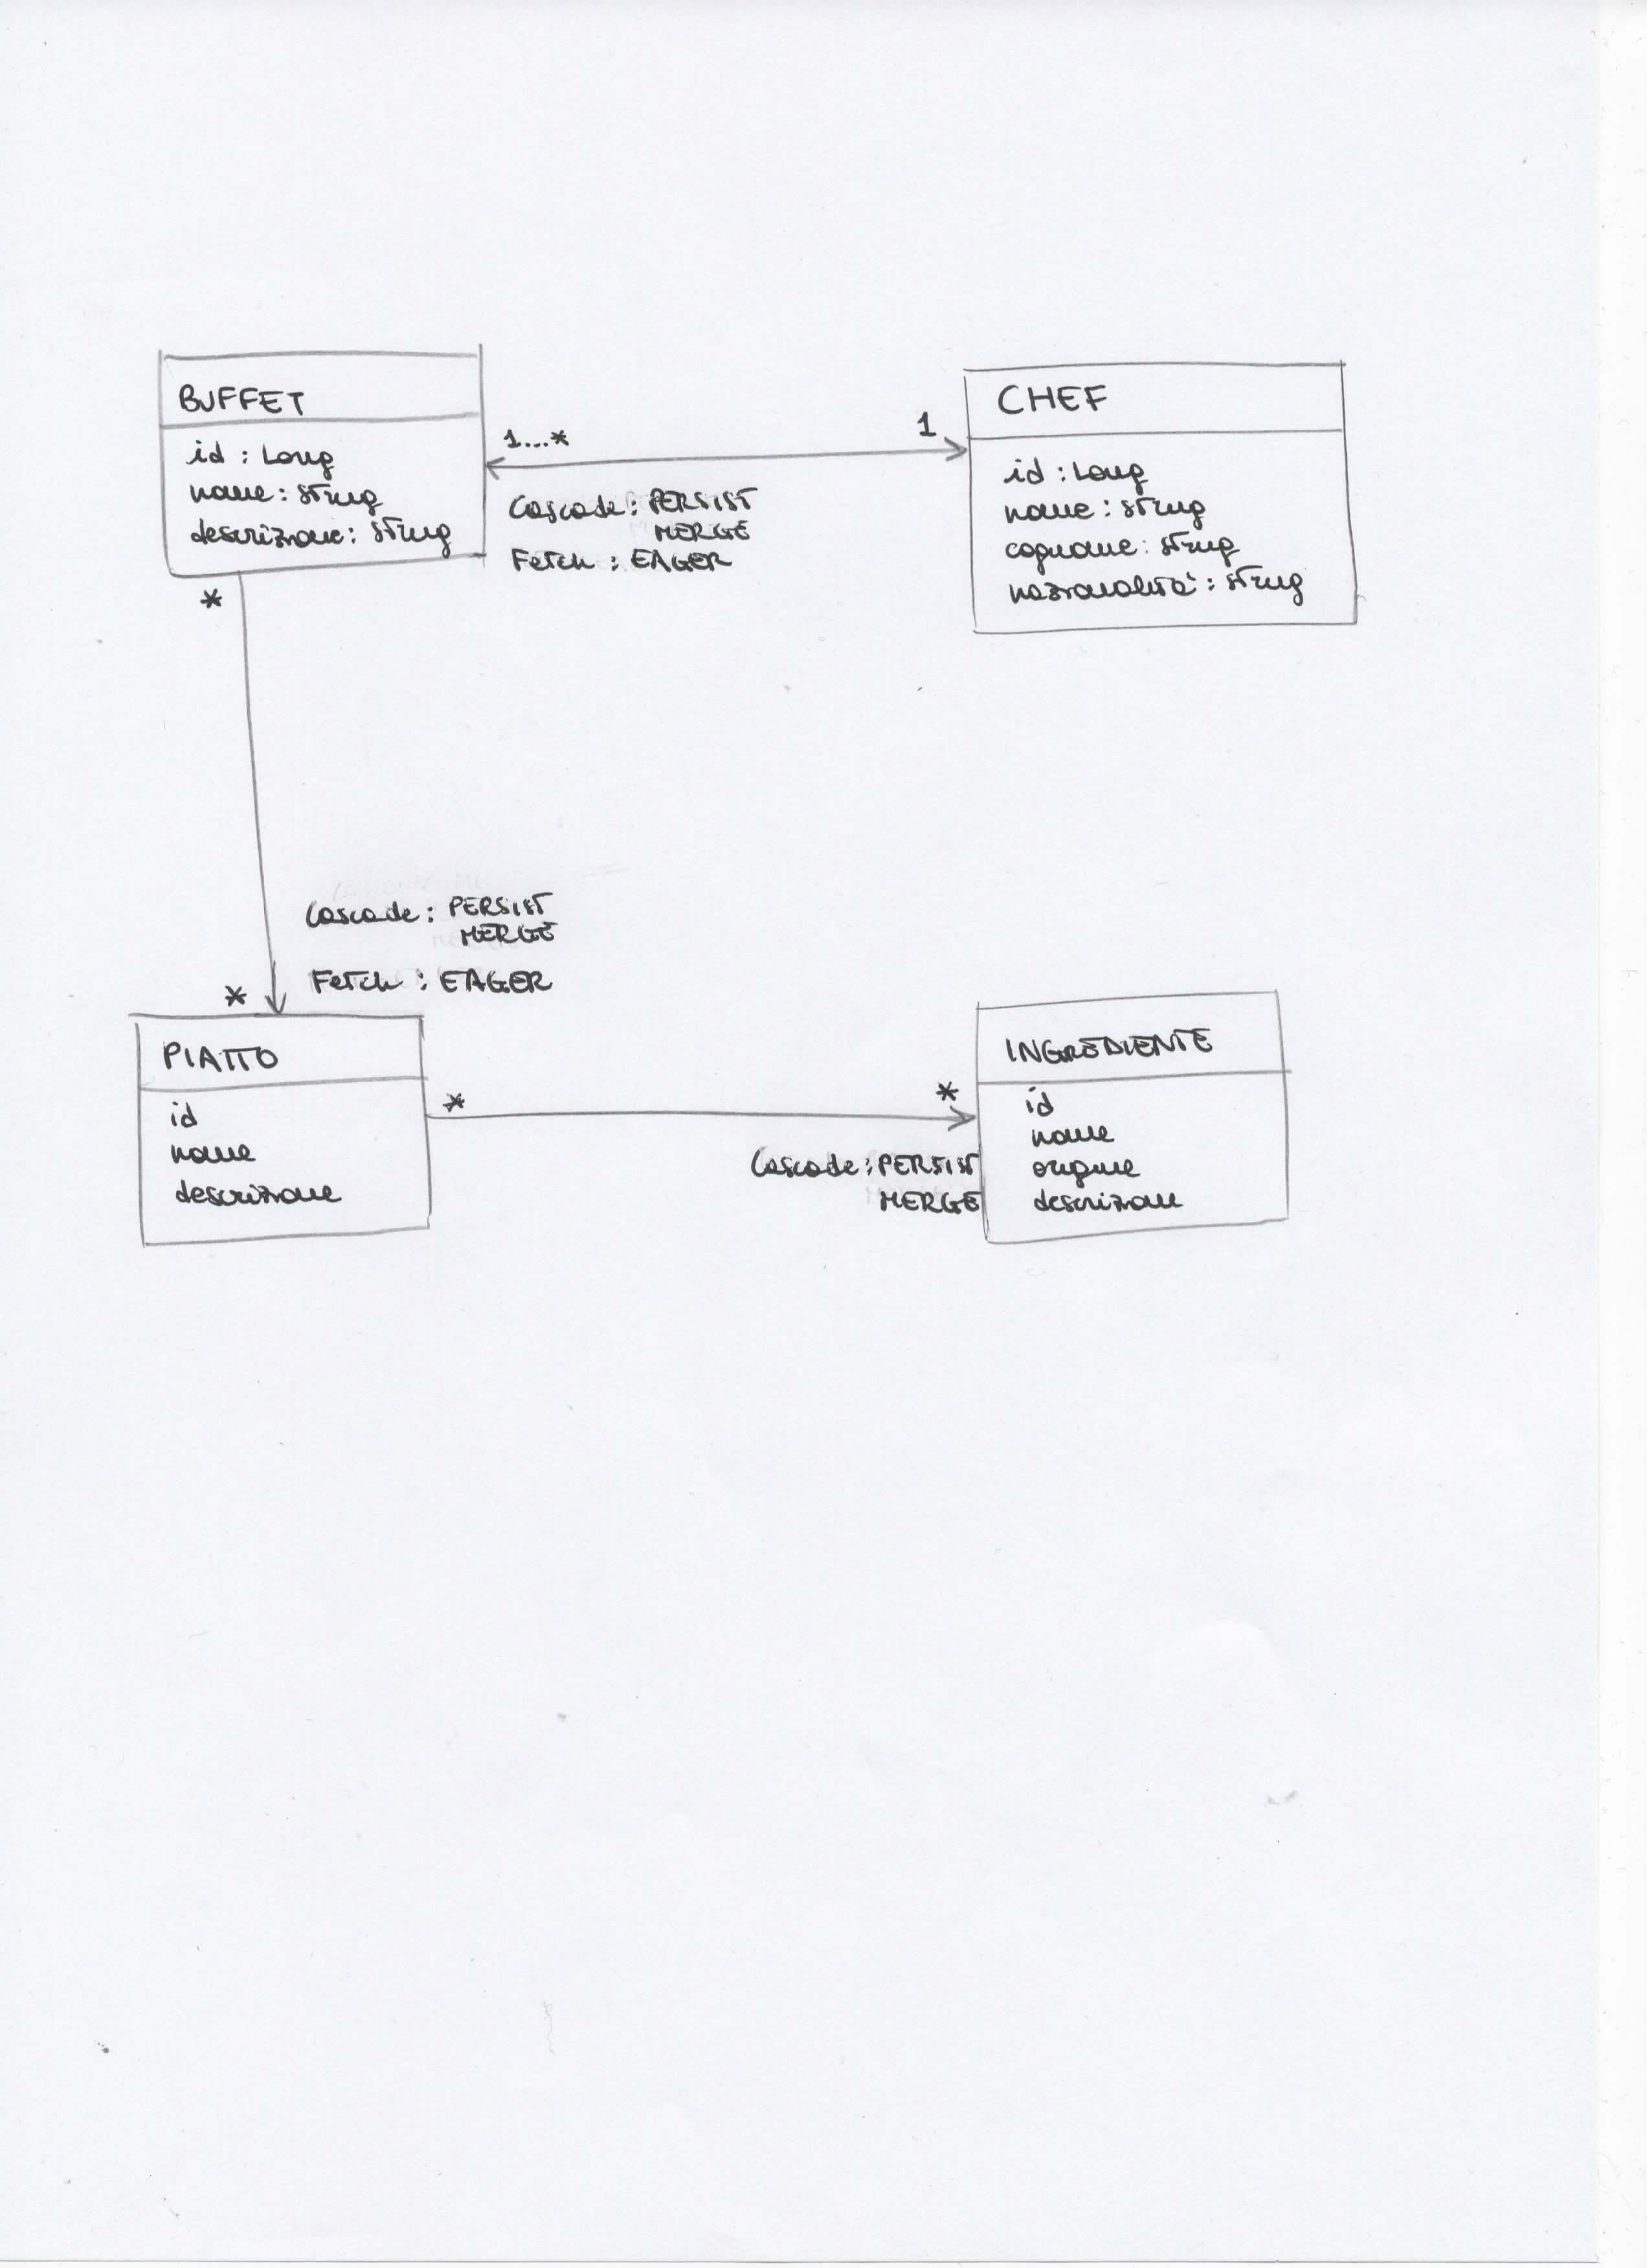 BUFFET
id : Long
nome : String
descrizione : String
1...*
1
Cascade : PERSIST
MERGE
Fetch : EAGER
CHEF
id : Long
nome : String
cognome : String
nazionalità : String
*
Cascade : PERSIST
MERGE
Fetch : EAGER
*
PIATTO
id
nome
descrizione
*
*
Cascade : PERSIST
MERGE
INGREDIENTE
id
nome
origine
descrizione